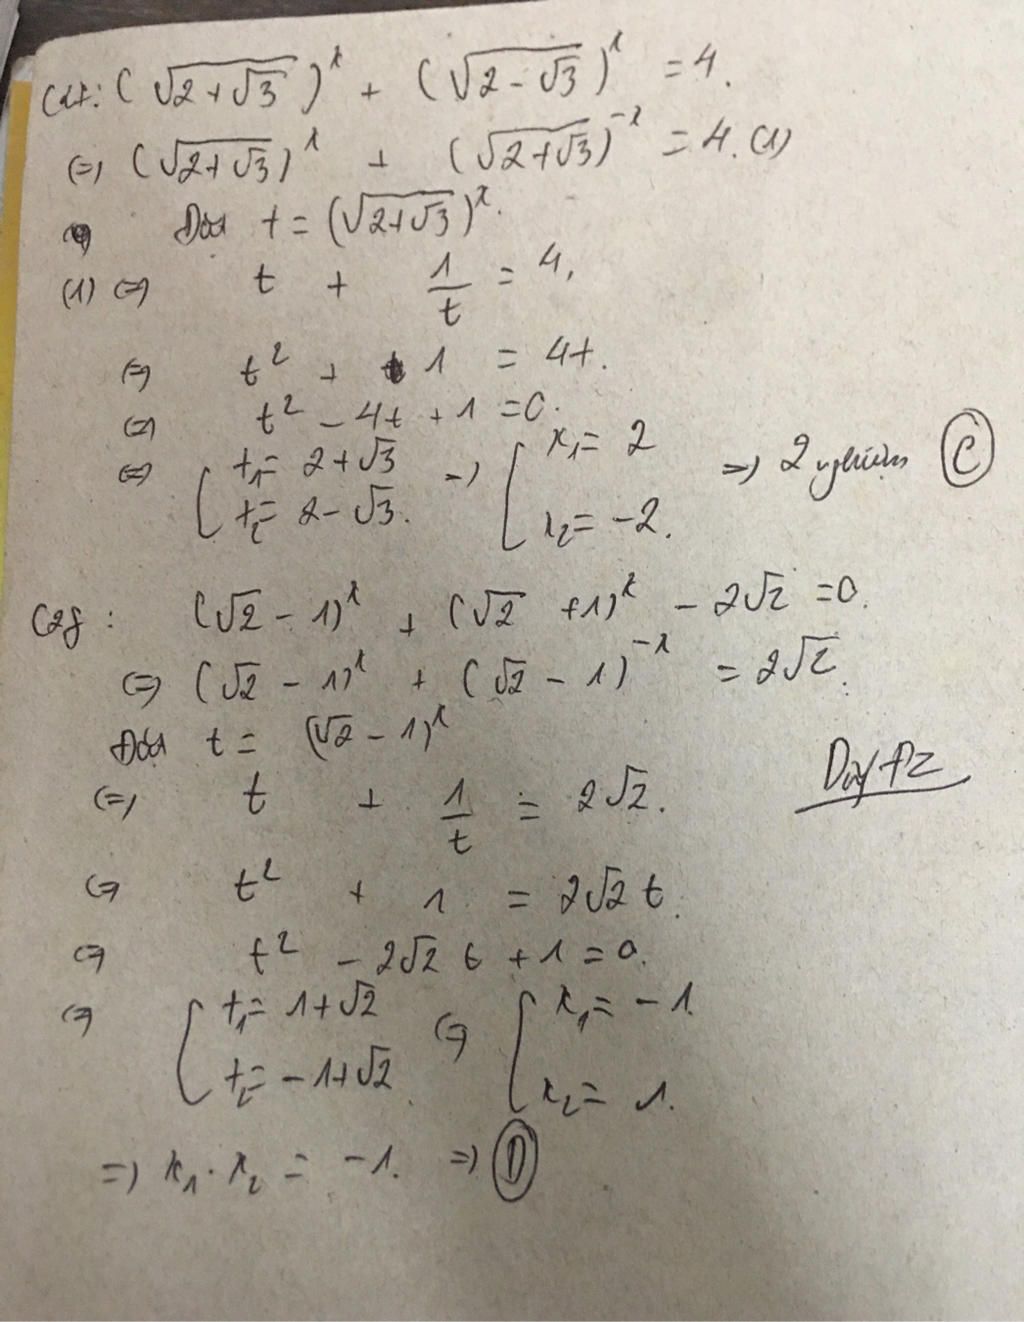 : (√(2+√3))^x + (√(2-√3))^x = 4.
(=) (√(2+√3))^x + (√(2+√3))^-x = 4. (1)
Đặt t = (√(2+√3))^x.
(1) (=) t + 1/t = 4,
(=) t² + 1 = 4t.
(=) t² - 4t + 1 = 0.
(=) [ t₁ = 2+√3 =) [ x₁ = 2 =) 2 nghiệm (C)
t₂ = 2-√3. x₂ = -2.
(√2 - 1)^x + (√2 + 1)^x - 2√2 = 0.
(=) (√2 - 1)^x + (√2 - 1)^-x = 2√2.
Đặt t = (√2 - 1)^x
(=) t + 1/t = 2√2.
(=) t² + 1 = 2√2 t.
(=) t² - 2√2 t + 1 = 0.
(=) [ t₁ = 1+√2 (=) [ x₁ = -1.
t₂ = -1+√2 x₂ = 1.
=) x₁ . x₂ = -1. =) (D)